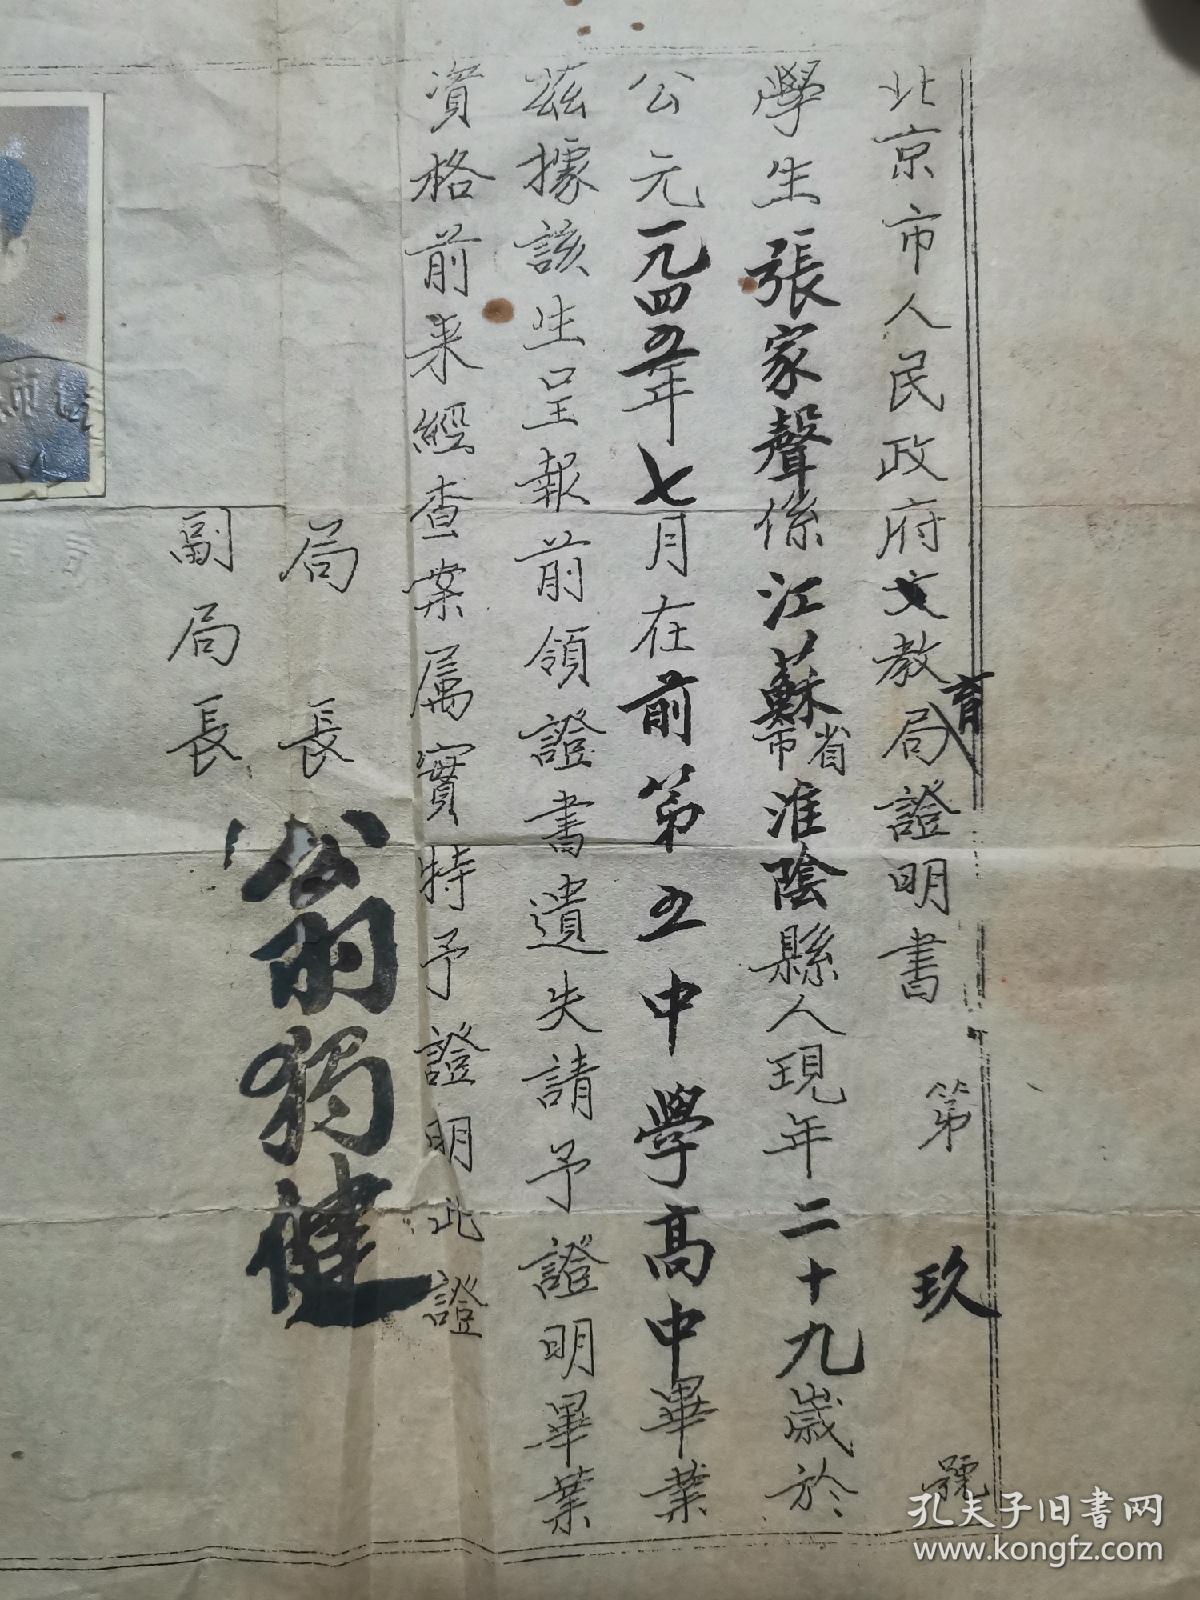 北京市人民政府文教育局證明書 第玖號
學生張家聲係江蘇省市淮陰縣人現年二十九歲於
公元一九四五年七月在前第五中學高中畢業
茲據該生呈報前領證書遺失請予證明畢業
資格前来經查案屬實特予證明此證
局長 翁獨健
副局長
孔夫子旧书网
www.kongfz.com